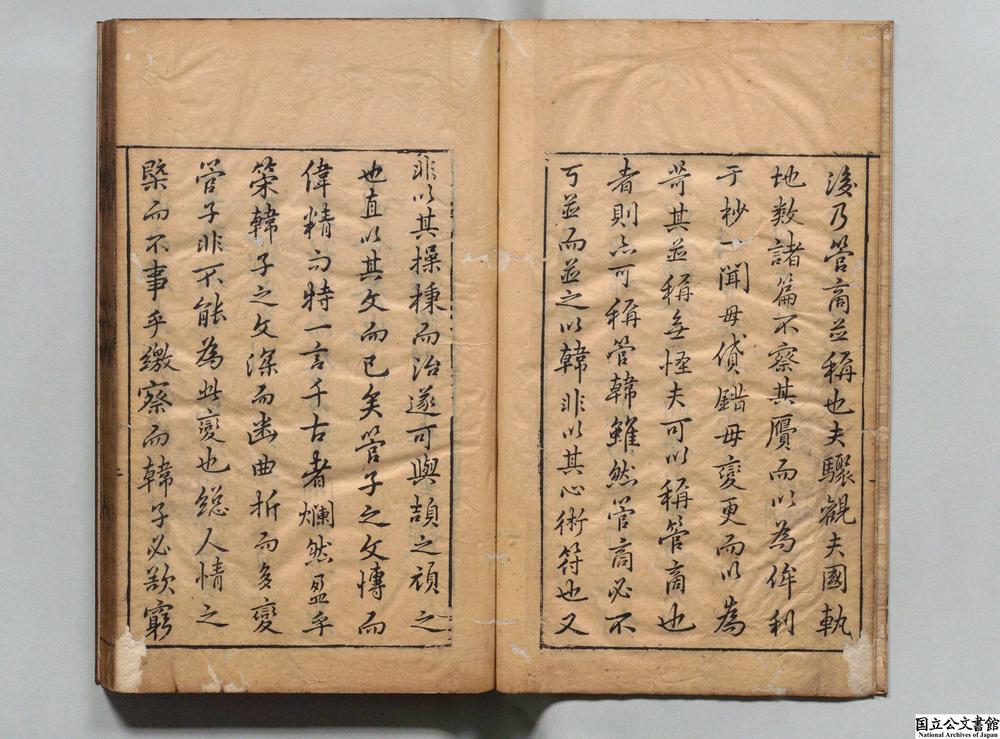 後乃管商並稱也夫驟觀夫國軌
地数諸篇不察其贗而以為侔利
于杪一聞毋貸錯毋變更而以為
苛其並稱無怪夫可以稱管商也
者則亦可稱管韓雖然管商必不
可並而並之以韓非以其心術符也又
非以其操棅而治遂可與頡之頏之
也直以其文而已矣管子之文愽而
偉精而特一言千古者爛然盈乎
䇿韓子之文深而幽曲折而多變
管子非不能為此變也縂人情之
槩而不事乎繳察而韓子必欲窮
国立公文書館
National Archives of Japan